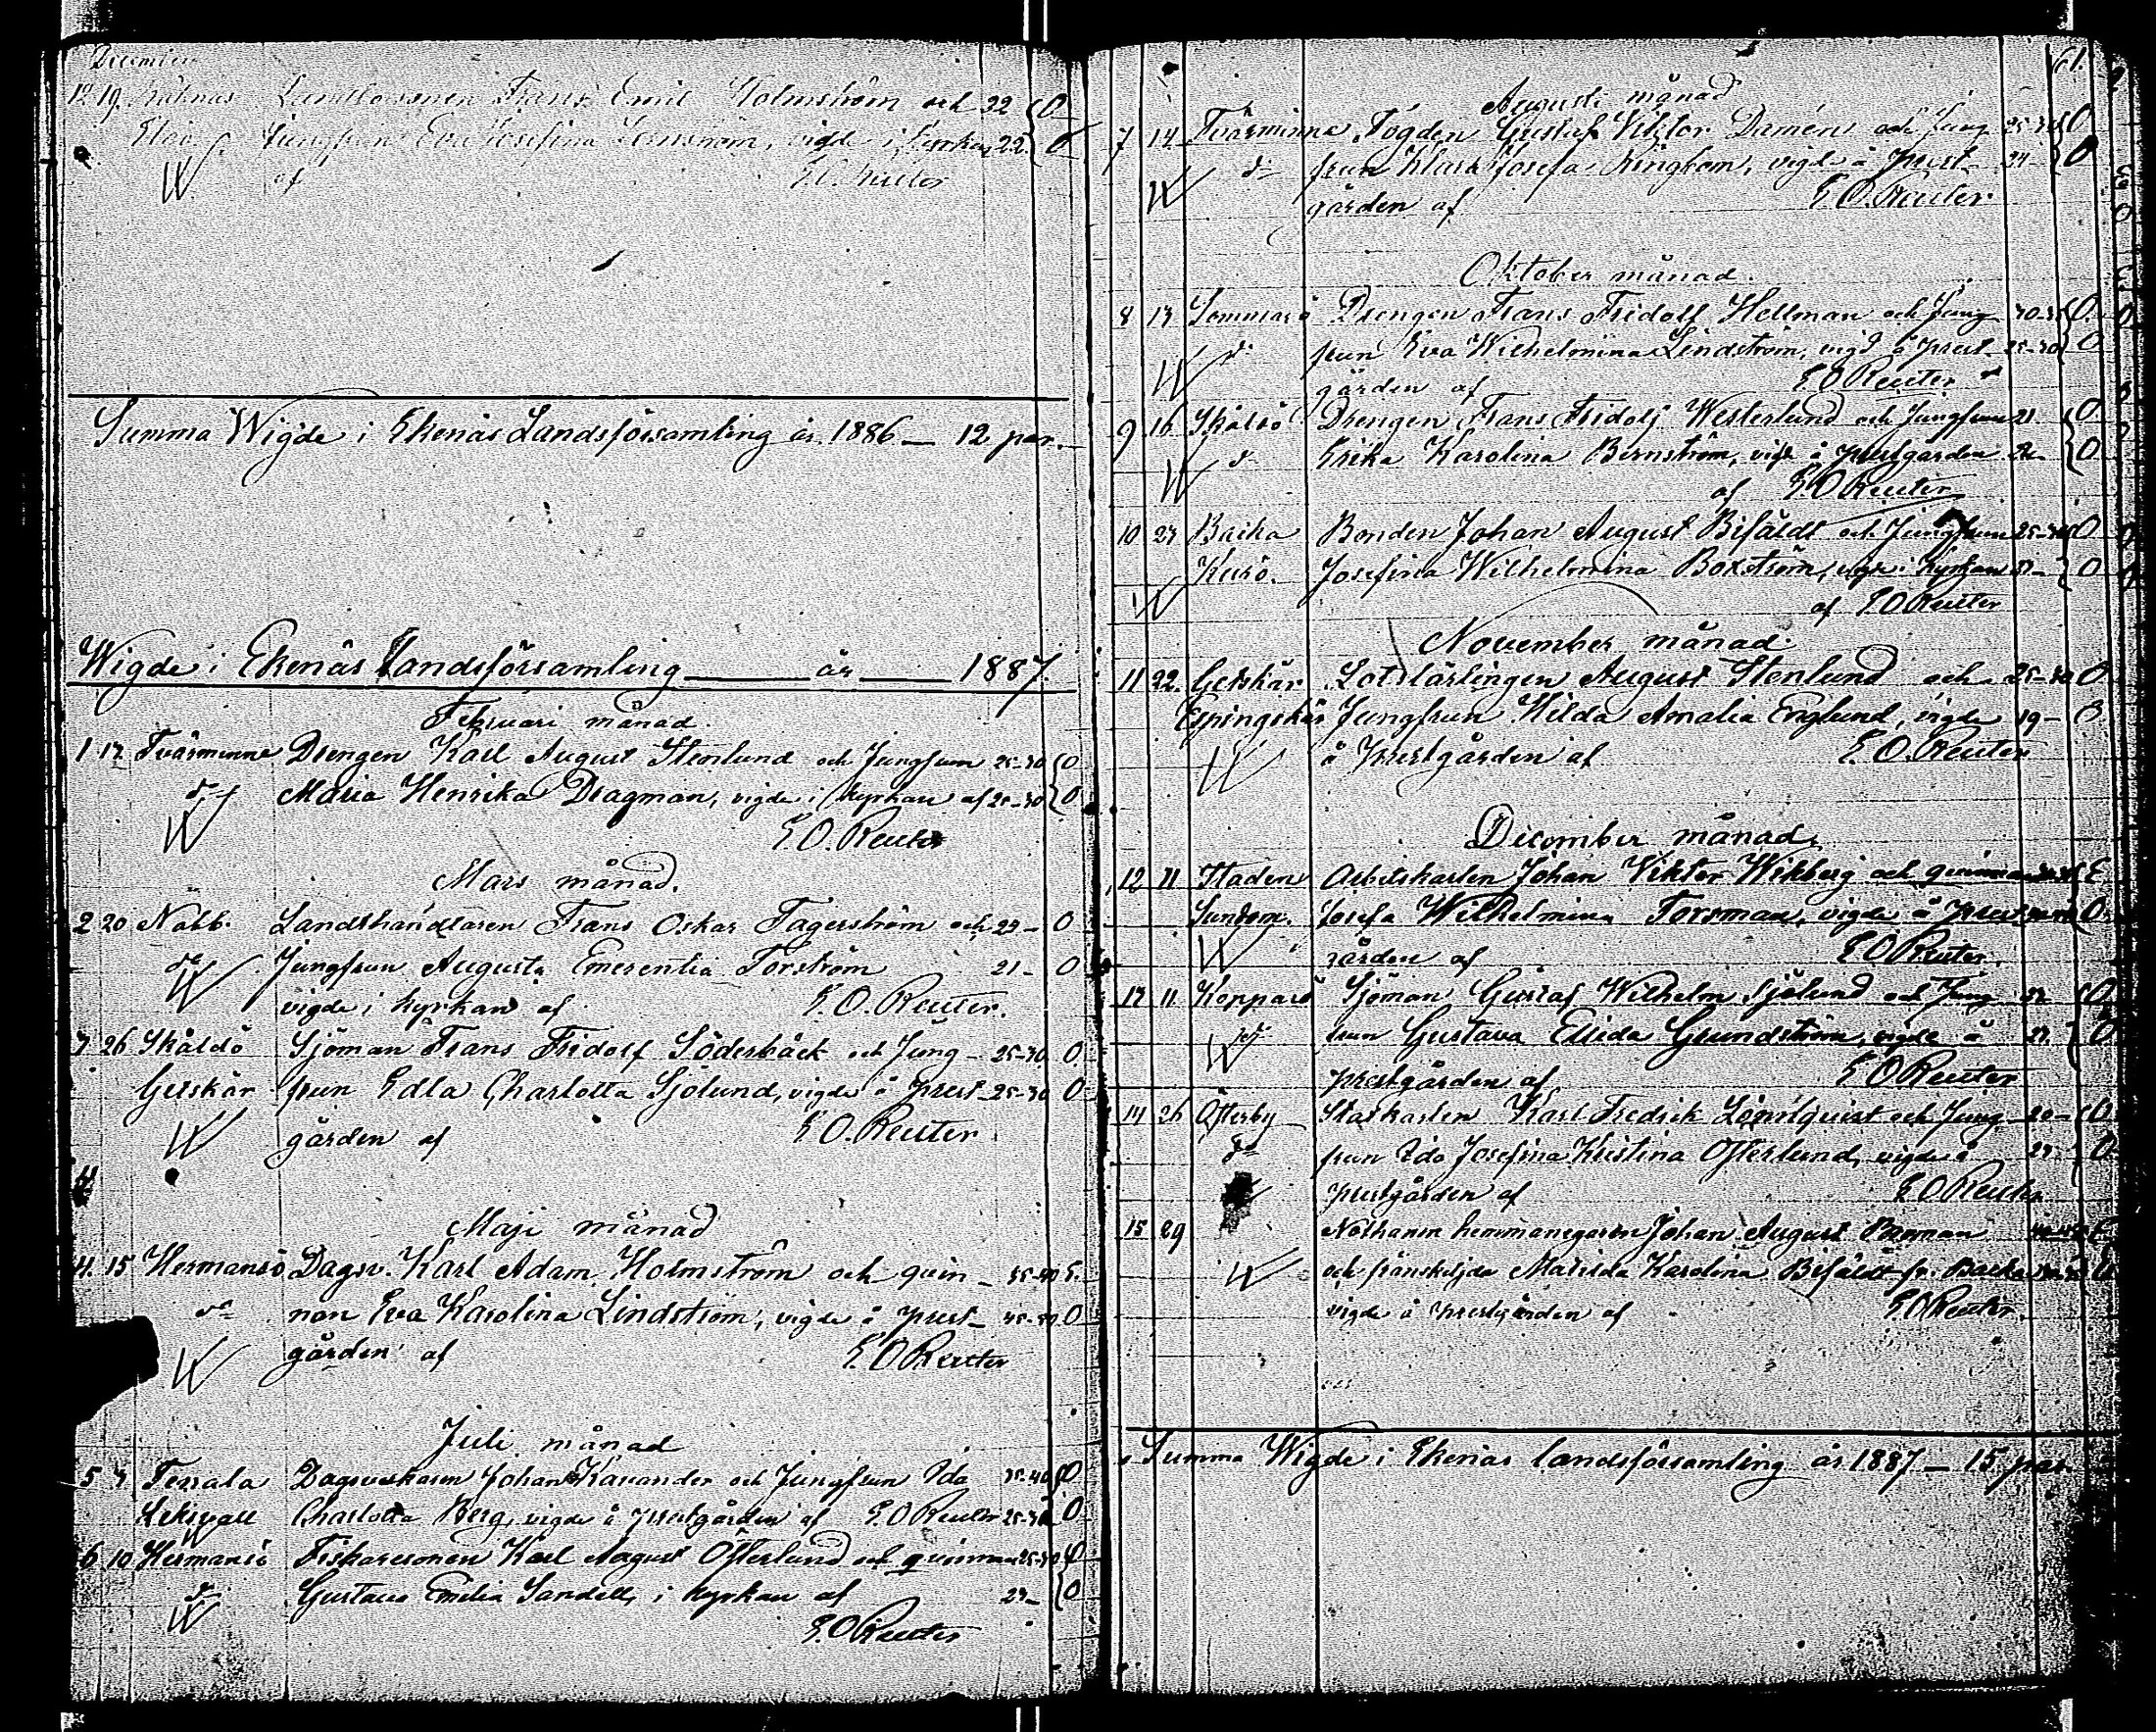 December
12 19. Landbosonen Frans Emil Holmström och 22 O
jungfrun Eva Josefina vigde i kyrkan 22. O
W af E.O. Reuter
Summa Wigde i Ekenäs Landsförsamling år 1886 — 12 par.
Wigde i Ekenäs Landsförsamling år 1887.
Februari månad.
1 12 Tvärminne Drengen Karl August Stenlund och Jungfrun 25-30 O
do Maria Henrika Dragman, vigde i kyrkan af 25-30 O
W E.O. Reuter
Mars månad.
2 20 Nabb. Landthandlaren Frans Oskar Fagerström och 23- O
do Jungfrun Augusta Emerentia Forström 21- O
W vigde i kyrkan af E.O. Reuter.
3 26 Skåldö Sjöman Frans Fridolf Söderbäck och Jung- 25-30 O
Getskär frun Edla Charlotta Sjölund, vigde å prest- 25-30 O
W gården af E.O. Reuter
4
Maji månad
4. 15 Hermansö Dagsv. Karl Adam Holmström och qvin- 35-40 E.
do nan Eva Karolina Lindström, vigde å prest- 45-50 O
W gården af E.O Reuter
Juli månad
5 3 Tenala Dagsverkaren Johan Kavander och Jungfrun Ida 35-40 O
Leksvall Charlotta Berg, vigde å prestgården af E.O Reuter 25-30 O
6 10 Hermansö Fiskaresonen Karl August Österlund och qvinnan 25-30 O
do Gustava Emilia Sandell, i kyrkan af 23- O
W E.O Reuter
61.
Augusti månad
7 14 Tvärminne Fogden Gustaf Viktor Damén och Jung- 25-30 O
do frun Klara Josefa Ringbom, vigde å prest- 24- O
W gården af E.O. Reuter
Oktober månad.
8 13 Sommarö Drengen Frans Fridolf Hellman och Jung- 30-35 O.
do frun Eva Wilhelmina Lindström, vigd å prest- 25-30 O
W gården af E O Reuter
9 16 Skåldö Drengen Frans Fridolf Westerlund och Jungfrun 21. O.
do Erika Karolina Bernström, vigde å prestgården 22- O
W af E.O Reuter
10 23 Backa Bonden Johan August Bifäldt och Jungfrun 25-30 O
Kurö. Josefina Wilhelmina Boxström, vigde i kyrkan O
W af E.O Reuter
November månad.
11 22. Getskär Lotslärlingen August Stenlund och 25-30 O
Espingskär Jungfrun Hilda Amalia Englund, vigde 19- O
W å prestgården af E.O. Reuter
December månad.
12 11 Staden Arbetskarlen Johan Viktor Wikberg och qvinnan E
Sundom. Josefa Wilhelmina Forsman, vigde å prest O.
W gården af E O Reuter.
13 11. Kopparö Sjöman Gustaf Wilhelm Sjölund och Jung- O
W frun Gustava Elida Grundström, vigde å 23. O
prestgården af E O Reuter
14 26 Österby Statkarlen Karl Fredrik Lönnqvist och Jung- 20- O
do frun Ida Josefina Kristina Österlund, vigde å 23 O
prestgården af E O Reuter
15 29 hemmansegaren Johan August E
W och frånskiljda Matilda Karolina Bifäldt fr. Backa
vigde å prestgården af E.O Reuter.
Summa Wigde i Ekenäs landsförsamling år 1887 — 15 par